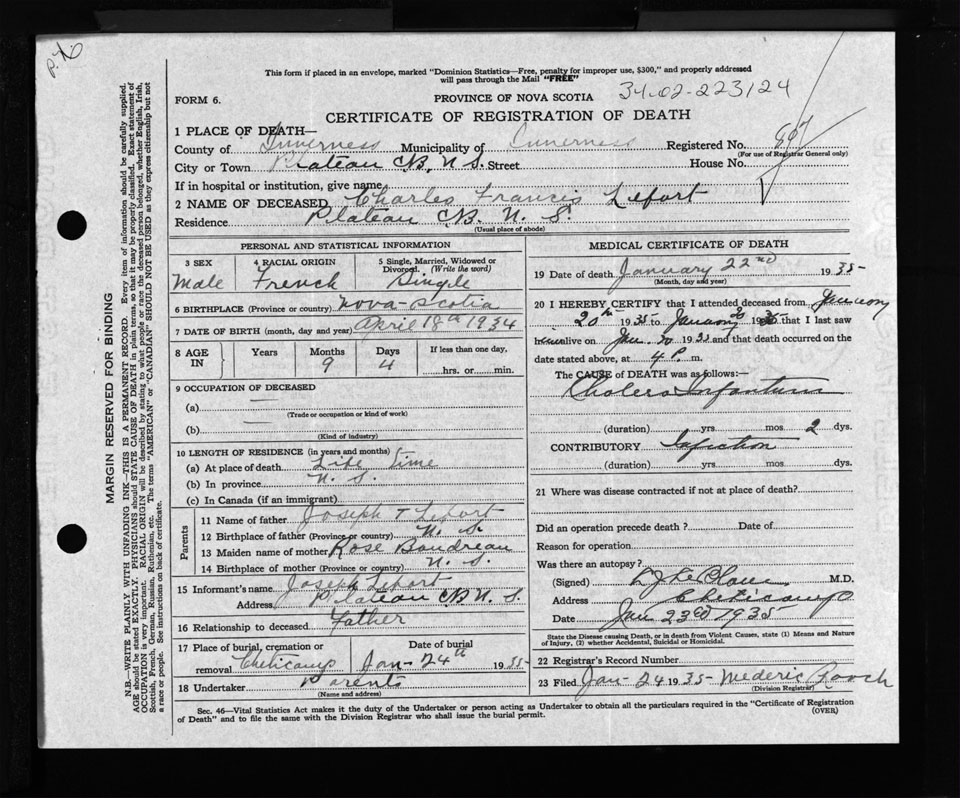 P.T.O
This form if placed in an envelope, marked "Dominion Statistics—Free, penalty for improper use, $300," and properly addressed
will pass through the Mail "FREE"
FORM 6.
PROVINCE OF NOVA SCOTIA
34-02-223124
CERTIFICATE OF REGISTRATION OF DEATH
1 PLACE OF DEATH—
County of Inverness Municipality of Inverness Registered No. 897
(For use of Registrar General only)
City or Town Plateau CB, N.S. Street House No.
If in hospital or institution, give name
2 NAME OF DECEASED Charles Francis Lefort
Residence Plateau CB. N. S
(Usual place of abode)
PERSONAL AND STATISTICAL INFORMATION
3 SEX 4 RACIAL ORIGIN 5 Single, Married, Widowed or
Divorced. (Write the word)
Male French Single
6 BIRTHPLACE (Province or country) Nova-Scotia
7 DATE OF BIRTH (month, day and year) April 18th 1934
8 AGE IN Years Months Days If less than one day,
9 4 hrs. or min.
9 OCCUPATION OF DECEASED
(a) —
(Trade or occupation or kind of work)
(b) —
(Kind of industry)
10 LENGTH OF RESIDENCE (in years and months)
(a) At place of death Life Time
(b) In province N. S.
(c) In Canada (if an immigrant)
Parents
11 Name of father Joseph T Lefort
12 Birthplace of father (Province or country) N. S.
13 Maiden name of mother Rose Boudreau
14 Birthplace of mother (Province or country) N. S.
15 Informant's name Joseph Lefort
Address Plateau CB N. S.
16 Relationship to deceased Father
17 Place of burial, cremation or Date of burial
removal Cheticamp Jan-24th 1935-
18 Undertaker Parents
(Name and address)
MEDICAL CERTIFICATE OF DEATH
19 Date of death January 22nd 1935-
(Month, day and year)
20 I HEREBY CERTIFY that I attended deceased from January
20th 1935 to January 20 1935 that I last saw
him alive on Jan. 20 1935 and that death occurred on the
date stated above, at 4 P. m.
The CAUSE of DEATH was as follows:—
Cholera Infantum
(duration) yrs. mos. 2 dys.
CONTRIBUTORY Infection
(duration) yrs. mos. dys.
21 Where was disease contracted if not at place of death?
Did an operation precede death? Date of
Reason for operation
Was there an autopsy?
(Signed) M.D.
Address Cheticamp
Date Jan 23rd 1935
State the Disease causing Death, or in death from Violent Causes, state (1) Means and Nature
of Injury, (2) whether Accidental, Suicidal or Homicidal.
22 Registrar's Record Number
23 Filed Jan-24 1935- Mederic Roach
(Division Registrar)
Sec. 46—Vital Statistics Act makes it the duty of the Undertaker or person acting as Undertaker to obtain all the particulars required in the "Certificate of Registration
of Death" and to file the same with the Division Registrar who shall issue the burial permit. (OVER)
MARGIN RESERVED FOR BINDING
N.B.—WRITE PLAINLY WITH UNFADING INK—THIS IS A PERMANENT RECORD. Every item of information should be carefully supplied.
AGE should be stated EXACTLY. PHYSICIANS should STATE CAUSE OF DEATH in plain terms, so that it may be properly classified. Exact statement of
OCCUPATION is very important. RACIAL ORIGIN will be described by stating to what people or race the deceased person belonged, whether English, Irish,
Scottish, French, German, Russian, Ruthenian, etc. The terms "AMERICAN" or "CANADIAN" SHOULD NOT BE USED as they express citizenship but not
a race or people. See instructions on back of certificate.